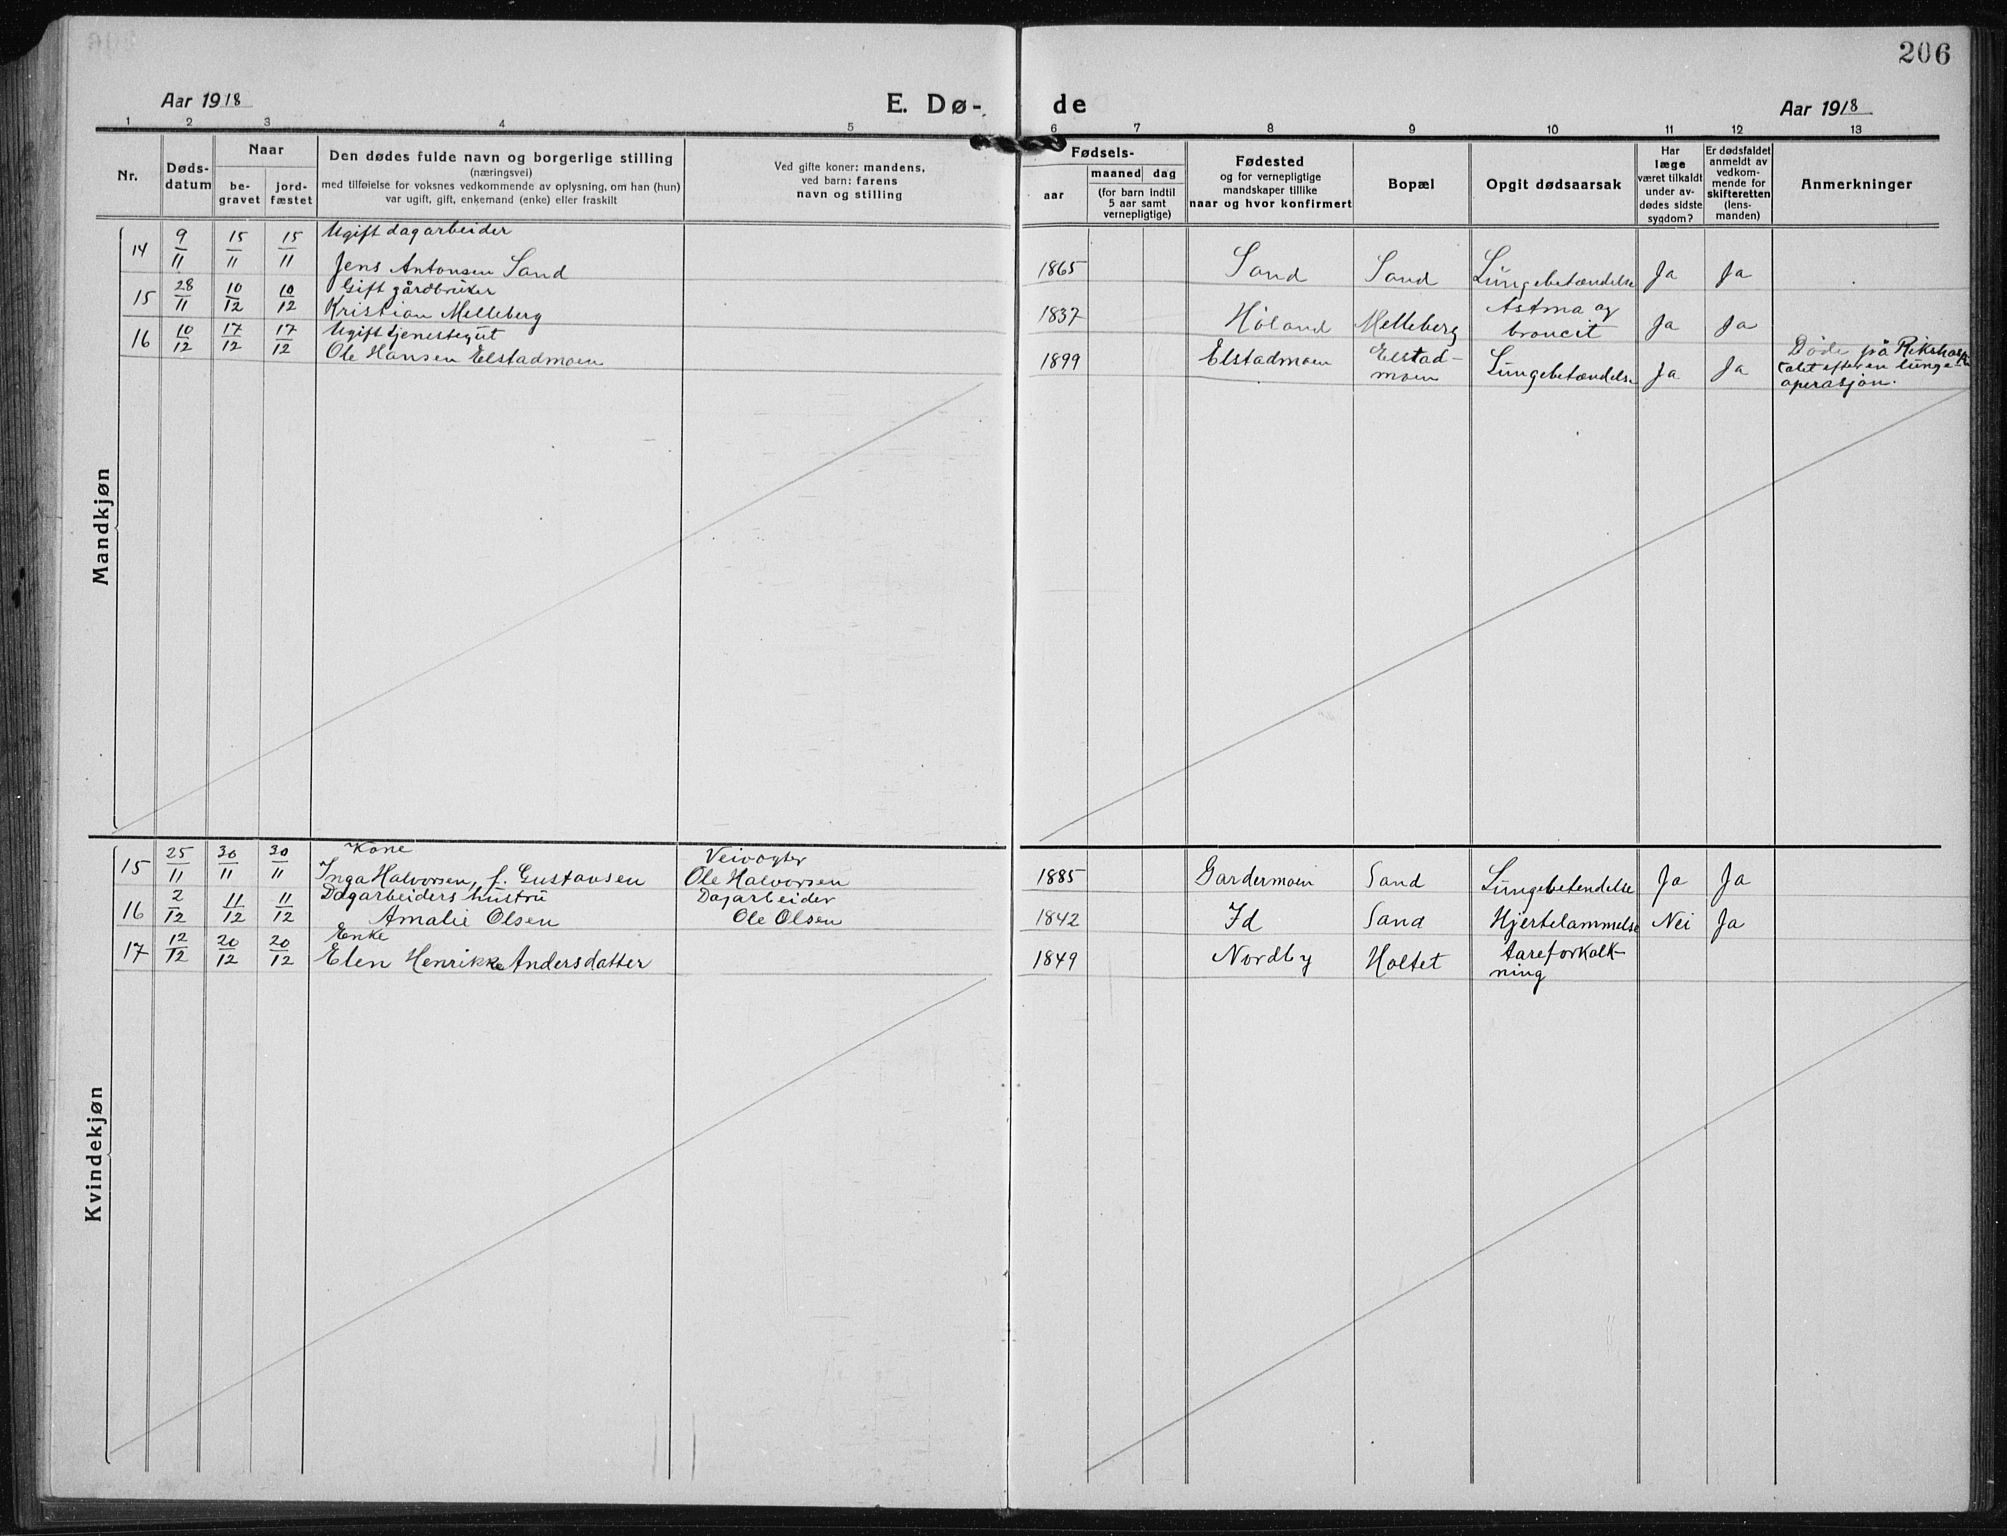 206
Aar 1918 E. Dø- de Aar 1918
1 2 3 4 5 6 7 8 9 10 11 12 13
Nr.
Døds-
datum
Naar
be-
gravet
jord-
fæstet
Den dødes fulde navn og borgerlige stilling
(næringsvei)
med tilføielse for voksnes vedkommende av oplysning, om han (hun)
var ugift, gift, enkemand (enke) eller fraskilt
Ved gifte koner: mandens,
ved barn: farens
navn og stilling
Fødsels-
aar
maaned dag
(for barn indtil
5 aar samt
vernepligtige)
Fødested
og for vernepligtige
mandskaper tillike
naar og hvor konfirmert
Bopæl
Opgit dødsaarsak
Har
læge
været tilkaldt
under av-
dødes sidste
sygdom?
Er dødsfaldet
anmeldt av
vedkom-
mende for
skifteretten
(lens-
manden)
Anmerkninger
Mandkjøn
14 9/11 15/11 15/11 Ugift dagarbeider
Jens Antonsen Sand 1865 Sand Sand Lungebetændelse Ja Ja
15 28/11 10/12 10/12 Gift gårdbruker
Kristian Melleberg 1837 Høland Melleberg Astma og
broncit Ja Ja
16 10/12 17/12 17/12 Ugift tjenestegut
Ole Hansen Elstadmoen 1899 Elstadmoen Elstad-
moen Lungebetændelse Ja Ja Døde på Rikshospi
talet efter en lunge-
operasjon.
Kvindekjøn
15 25/11 30/11 30/11 Kone
Inga Halvorsen, f. Gustavsen Veivogter
Ole Halvorsen 1885 Gardermoen Sand Lungebetendelse Ja Ja
16 2/12 11/12 11/12 Dagarbeiders hustru
Amalie Olsen Dagarbeider
Ole Olsen 1842 Id Sand Hjertelammelse Nei Ja
17 12/12 20/12 20/12 Enke
Elen Henrikke Andersdatter 1849 Nordby Holtet Aareforkalk-
ning